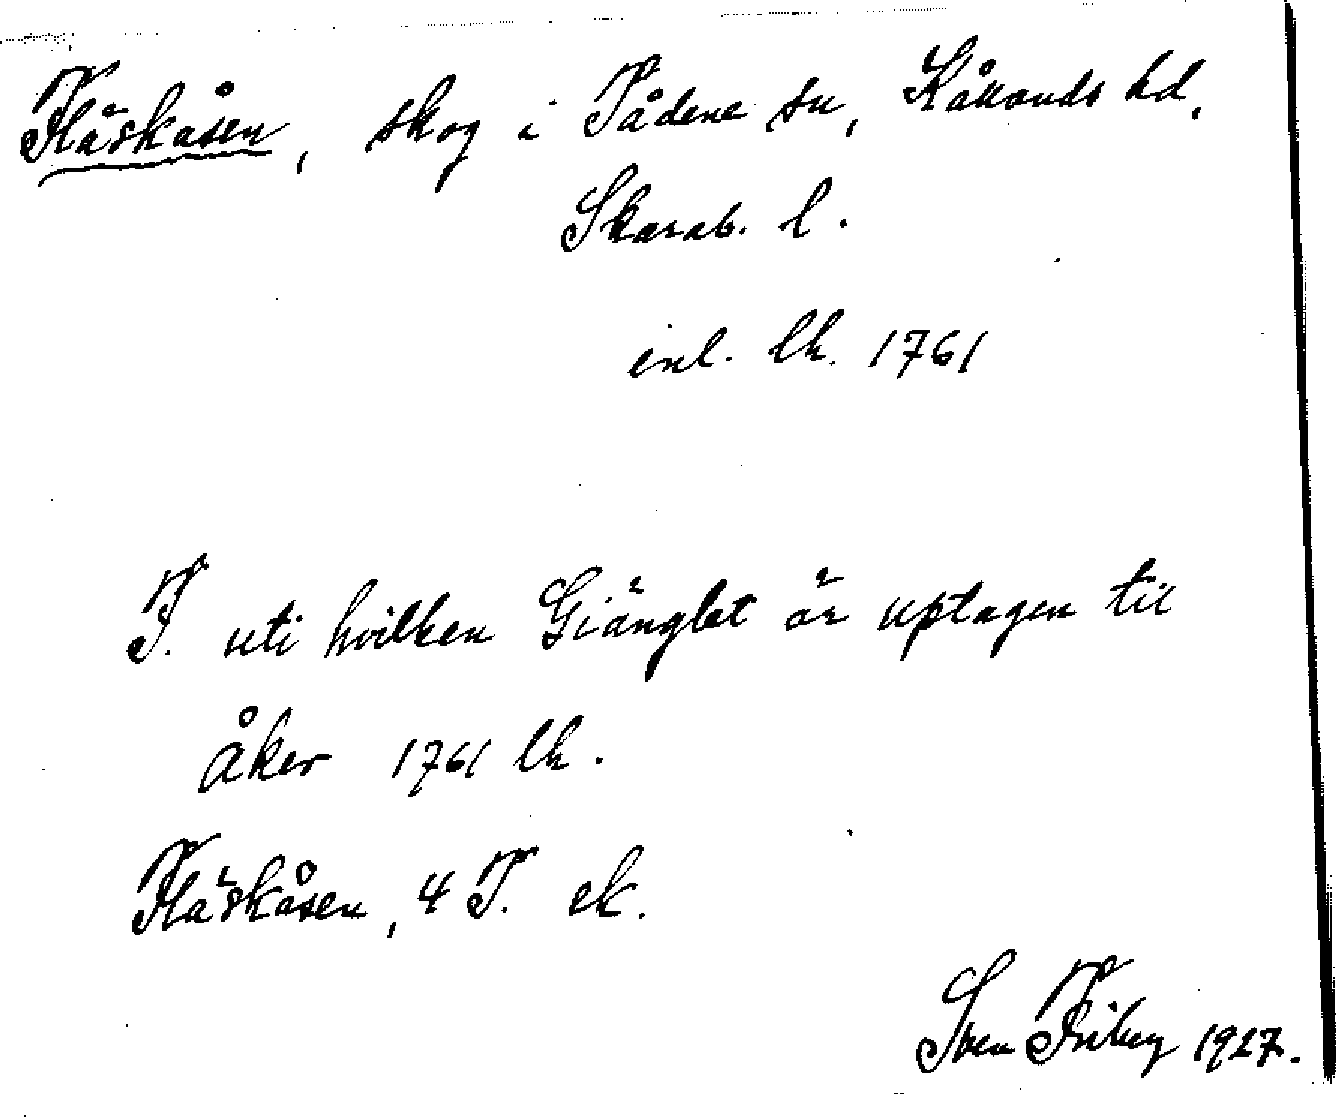 Fläskåsen, skog i Tådene sn, Kållands hd.
Skarab. l.
enl. lk. 1761
F. uti hvilken Giänglet är uptagen til
åker 1761 lk.
Fläskåsen, 4 T. ek.
Sven Friberg 1927.